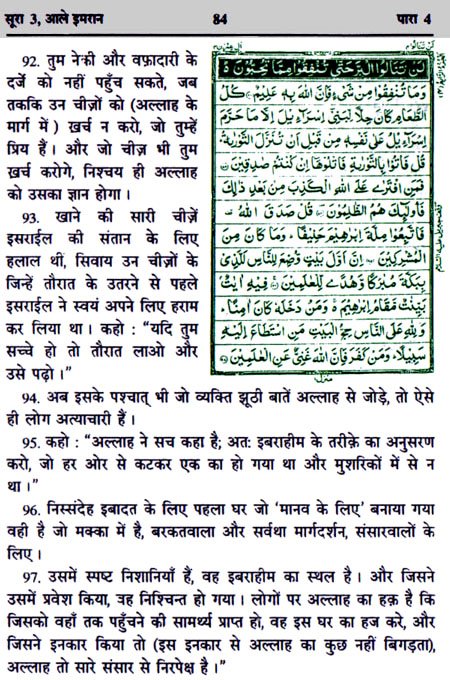 सूरा 3, आले इमरान 84 पारा 4
92. तुम नेकी और वफ़ादारी के
दर्जे को नहीं पहुँच सकते, जब
तककि उन चीज़ों को (अल्लाह के
मार्ग में) ख़र्च न करो, जो तुम्हें
प्रिय हैं। और जो चीज़ भी तुम
ख़र्च करोगे, निश्चय ही अल्लाह
को उसका ज्ञान होगा।
93. खाने की सारी चीज़ें
इसराईल की संतान के लिए
हलाल थीं, सिवाय उन चीज़ों के
जिन्हें तौरात के उतरने से पहले
इसराईल ने स्वयं अपने लिए हराम
कर लिया था। कहो : “यदि तुम
सच्चे हो तो तौरात लाओ और
उसे पढ़ो।”
لَنْ تَنَالُوا الْبِرَّ حَتّٰى تُنْفِقُوْا مِمَّا تُحِبُّوْنَ
وَمَا تُنْفِقُوْا مِنْ شَیْءٍ فَاِنَّ اللّٰهَ بِهٖ عَلِیْمٌ كُلُّ
الطَّعَامِ كَانَ حِلًّا لِّبَنِیْۤ اِسْرَآءِیْلَ اِلَّا مَا حَرَّمَ
اِسْرَآءِیْلُ عَلٰى نَفْسِهٖ مِنْ قَبْلِ اَنْ تُنَزَّلَ التَّوْرٰىةُ
قُلْ فَاْتُوْا بِالتَّوْرٰىةِ فَاتْلُوْهَاۤ اِنْ كُنْتُمْ صٰدِقِیْنَ
فَمَنِ افْتَرٰى عَلَى اللّٰهِ الْكَذِبَ مِنْ بَعْدِ ذٰلِكَ
فَاُولٰٓئِكَ هُمُ الظّٰلِمُوْنَ قُلْ صَدَقَ اللّٰهُ
فَاتَّبِعُوْا مِلَّةَ اِبْرٰهِیْمَ حَنِیْفًا وَمَا كَانَ مِنَ
الْمُشْرِكِیْنَ اِنَّ اَوَّلَ بَیْتٍ وُّضِعَ لِلنَّاسِ لَلَّذِیْ
بِبَكَّةَ مُبٰرَكًا وَّهُدًى لِّلْعٰلَمِیْنَ فِیْهِ اٰیٰتٌ
بَیِّنٰتٌ مَّقَامُ اِبْرٰهِیْمَ وَمَنْ دَخَلَهٗ كَانَ اٰمِنًا
وَلِلّٰهِ عَلَى النَّاسِ حِجُّ الْبَیْتِ مَنِ اسْتَطَاعَ اِلَیْهِ
سَبِیْلًا وَمَنْ كَفَرَ فَاِنَّ اللّٰهَ غَنِیٌّ عَنِ الْعٰلَمِیْنَ
94. अब इसके पश्चात् भी जो व्यक्ति झूठी बातें अल्लाह से जोड़े, तो ऐसे
ही लोग अत्याचारी हैं।
95. कहो : “अल्लाह ने सच कहा है; अत: इबराहीम के तरीक़े का अनुसरण
करो, जो हर ओर से कटकर एक का हो गया था और मुशरिकों में से न
था।”
96. निस्संदेह इबादत के लिए पहला घर जो ‘मानव के लिए’ बनाया गया
वही है जो मक्का में है, बरकतवाला और सर्वथा मार्गदर्शन, संसारवालों के
लिए।
97. उसमें स्पष्ट निशानियाँ हैं, वह इबराहीम का स्थल है। और जिसने
उसमें प्रवेश किया, वह निश्चिन्त हो गया। लोगों पर अल्लाह का हक़ है कि
जिसको वहाँ तक पहुँचने की सामर्थ्य प्राप्त हो, वह इस घर का हज करे, और
जिसने इनकार किया तो (इस इनकार से अल्लाह का कुछ नहीं बिगड़ता),
अल्लाह तो सारे संसार से निरपेक्ष है।”